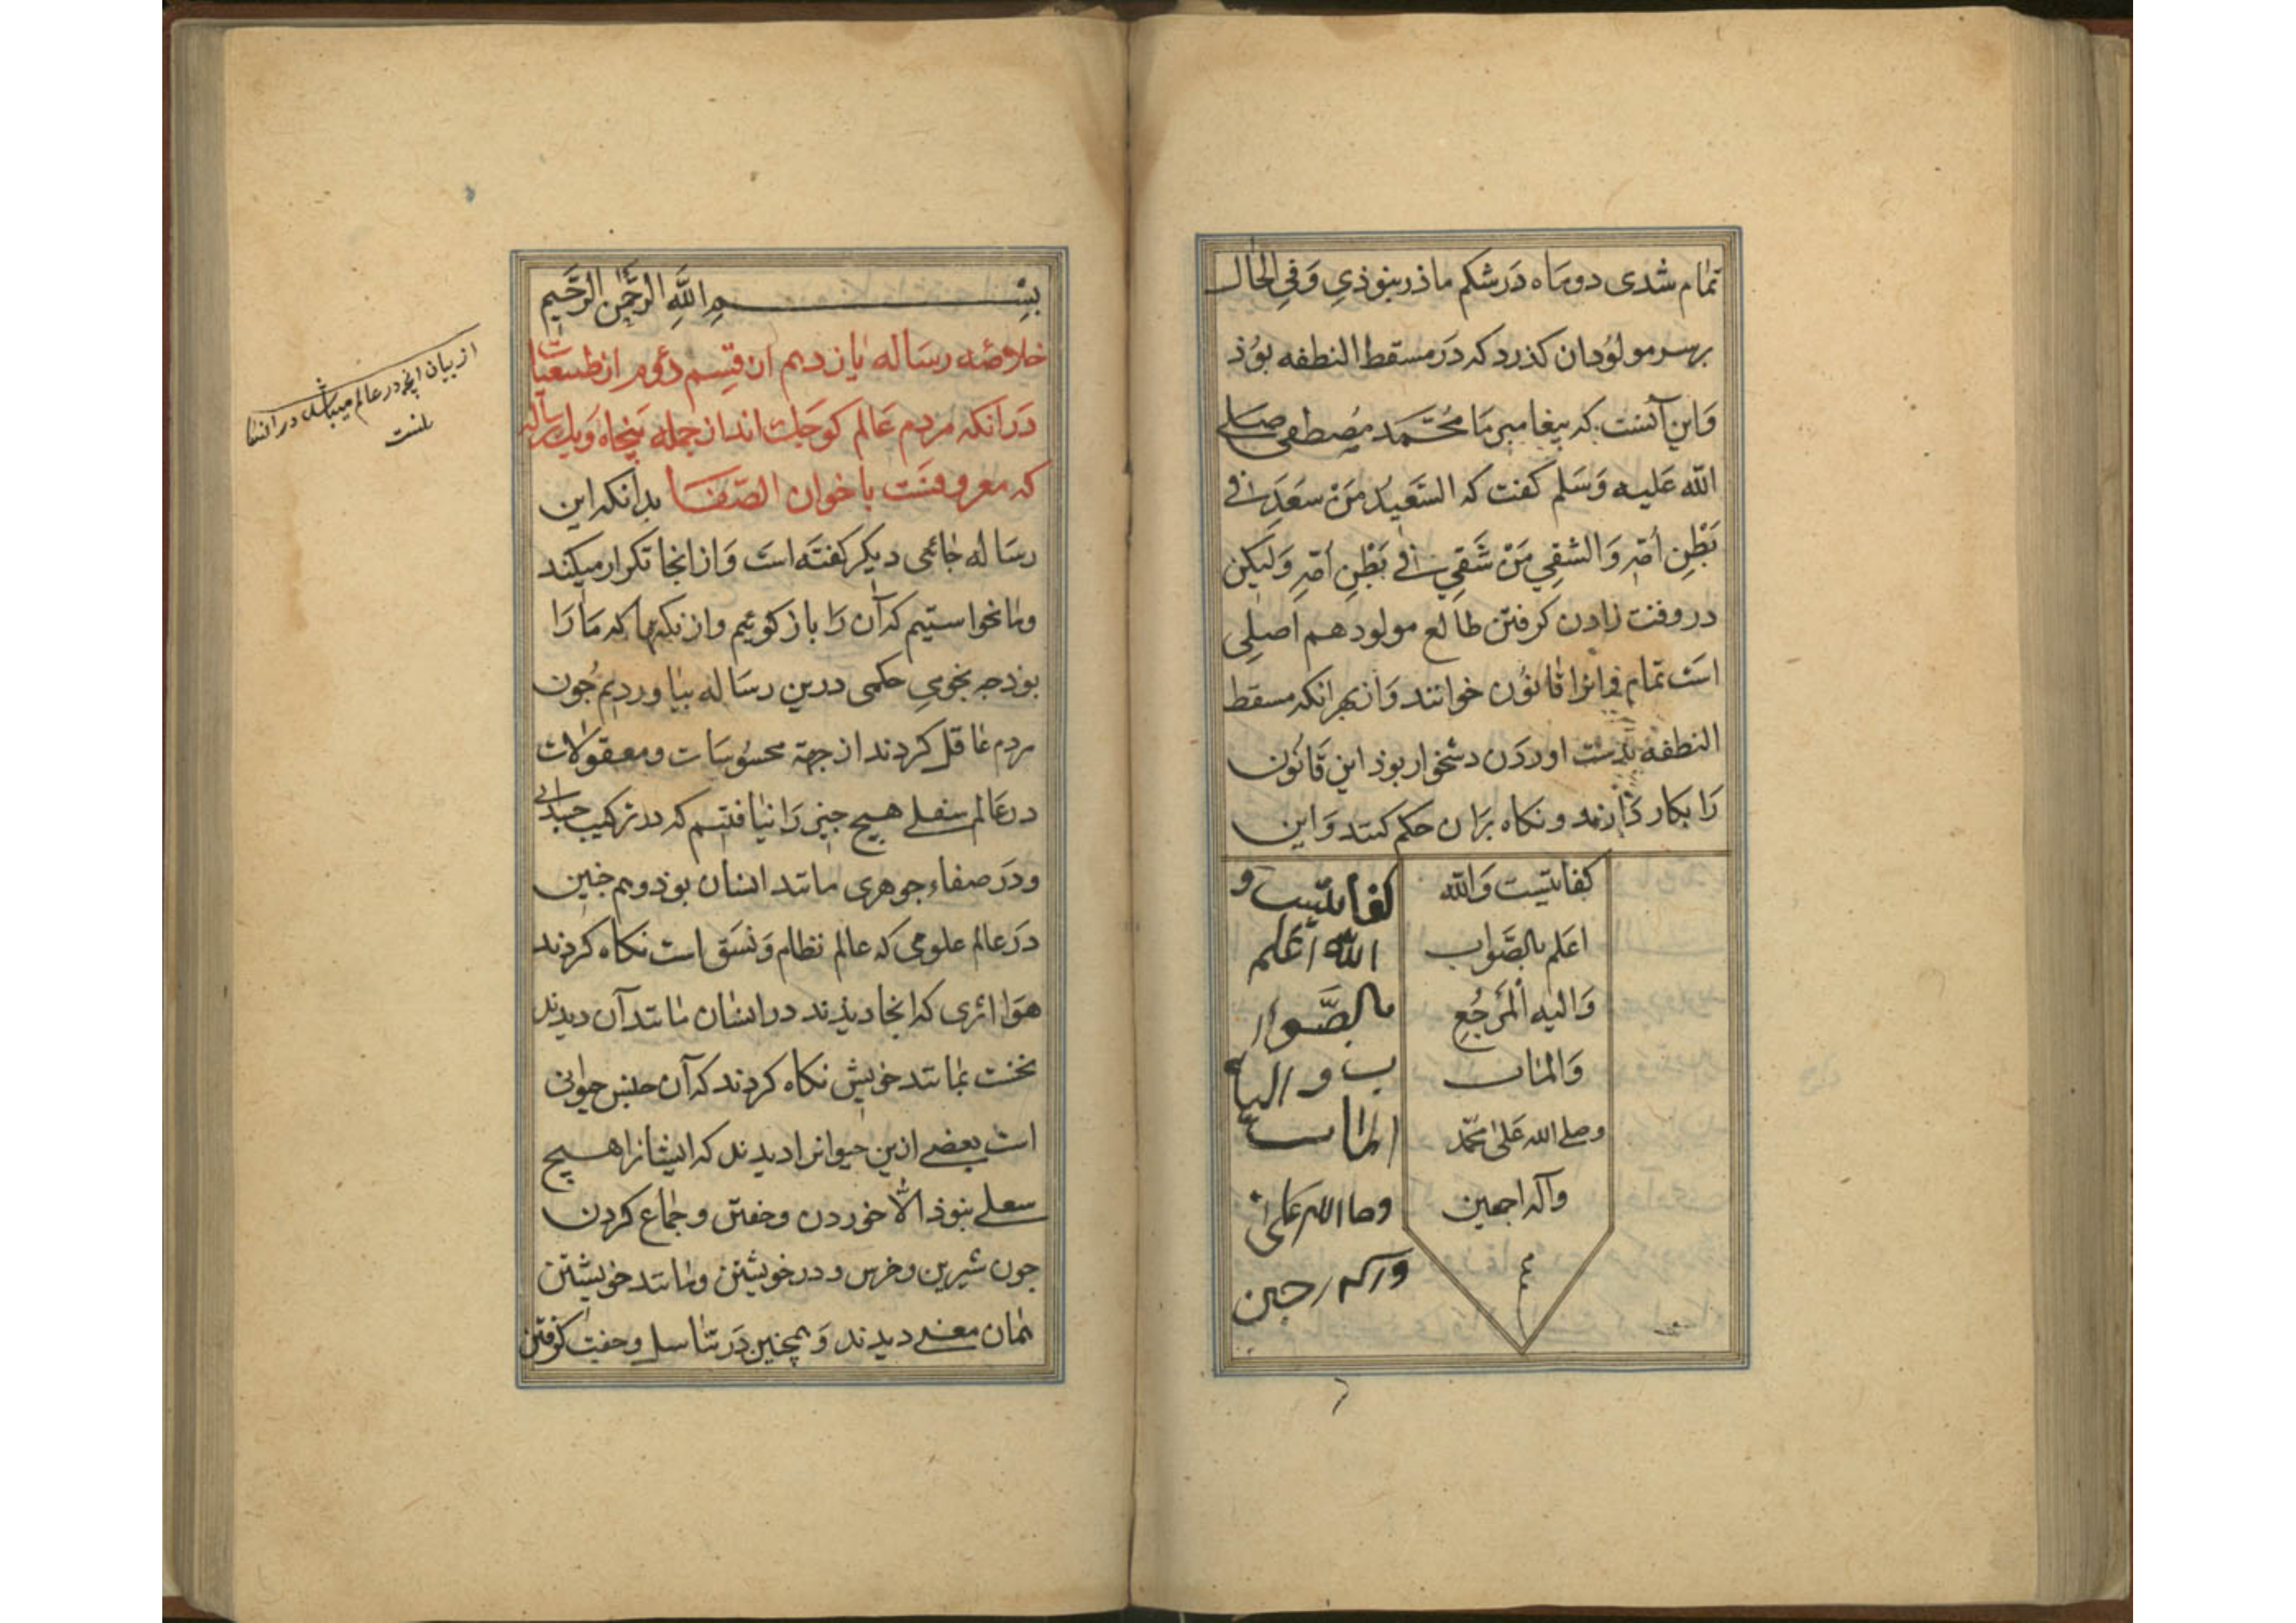 تمام شدی دو ماه در شکم ماذر بنوذی و فی الحال
بر سر مولودان کذرد که در مسقط النطفه بوذ
وَاین آنست که پیغامبر ما محمد مصطفی صلی
الله علیه وَسلم کفت که السَّعیدُ مَن سَعَدَ فی
بَطْنِ اُمّهِ وَالشقی مَنْ شَقِی فی بَطْنِ اُمّهِ وَلیکن
در وقت زادن کرفتن طالع مولود هم اصلی
است تمام و انرا قانون خوانند وَاز بهر انکه مسقط
النطفه بدست اوردن دشخوار بوذ این قانون
رَا بکار دارند و نکاه بران حکم کنند وَاین
کفایتیست وَالله
اعلم بالصَّواب
وَالیه اَلمَرجُعِ
وَالماب
وصلی الله عَلی محمّد
وآله اجمعین
کفایتیست و
الله اعلم
بالصَّوا
ب و الیه
الماب
وصا الله علی
وآله
بِسْمِ اللَّهِ الرَّحْمٰنِ الرَّحِیمِ
خلاصه رسَاله یازدهم از قِسم دوم از طبیعیات
دَر انکه مَردم عَالم کوچک اند از جمله پنجاه وَیک رساله
که معروفست باخوان الصّفا بدانکه این
رسَاله جائی دیکر کفته است وَاز انجا تکرار میکند
وما نخواستیم که آن را باز کوئیم واز نکتها که مَا رَا
بوذ چه نجومی حکمی درین رسَاله بیاوردیم چون
مردم عاقل کردند از جهة محسُوسَات و معقولات
در عَالم سفلی هیچ چیز رَا نیافتیم که در ترکیب جسدانی
ودَر صفاء جوهری مانند انسان بوذ وهم چنین
دَر عالم علومی که عالم نظام وَنسَق است نکاه کردند
هوَا اثری که انجا دیذند در انسان مانند آن دیدند
نخست بمانند خویش نکاه کردند که آن جنس حیوانی
است بعضی ازین حیوانرا دیدند که ایشانرا هیچ
سعلی بنوذ الّا خوردن وخفتن وجماع کردن
چون شیرین وخرس ودر خویشتن ومانند خویشتن
همان معنی دیدند وَهمچنین دَر تناسل وجفت کرفتن
از بیان انچه در عالم میباشد در انسا
نست